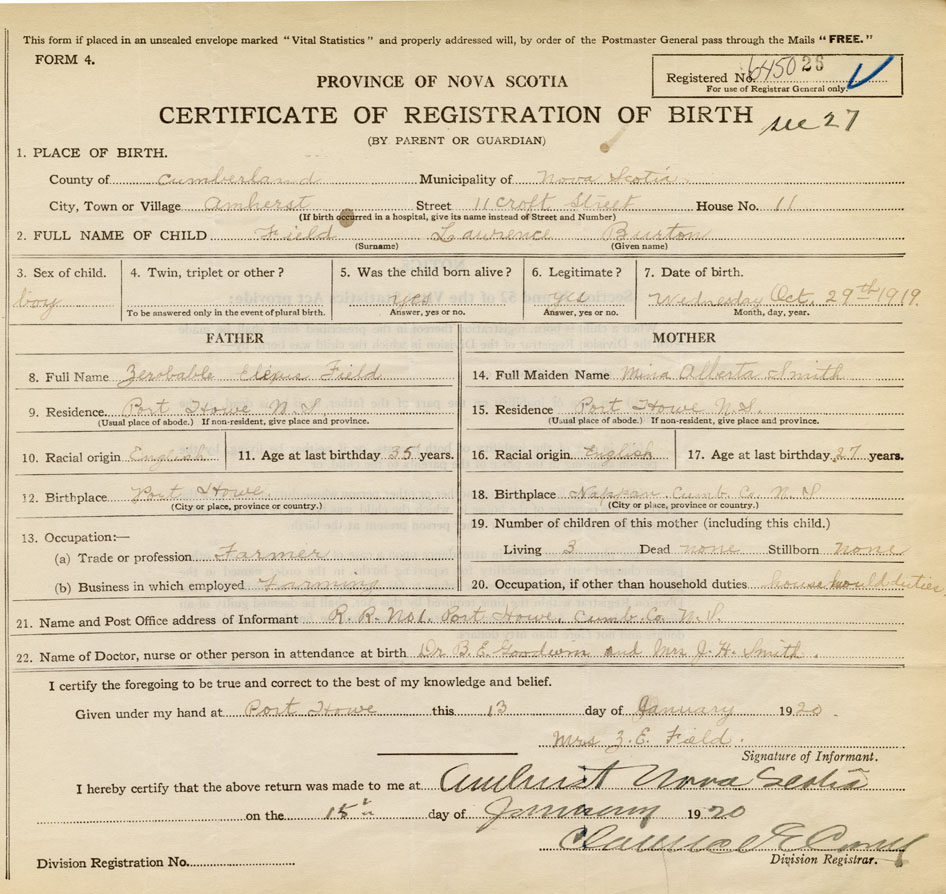 This form if placed in an unsealed envelope marked "Vital Statistics" and properly addressed will, by order of the Postmaster General pass through the Mails "FREE."
FORM 4.
PROVINCE OF NOVA SCOTIA
Registered No. 645026
For use of Registrar General only.
CERTIFICATE OF REGISTRATION OF BIRTH
see 27
(BY PARENT OR GUARDIAN)
1. PLACE OF BIRTH.
County of Cumberland Municipality of Nova Scotia
City, Town or Village Amherst Street 11 Croft Street House No. 11
(If birth occurred in a hospital, give its name instead of Street and Number)
2. FULL NAME OF CHILD Field Lawrence Burton
(Surname) (Given name)
3. Sex of child. 4. Twin, triplet or other? 5. Was the child born alive? 6. Legitimate? 7. Date of birth.
boy yes yes Wednesday Oct. 29th 1919.
To be answered only in the event of plural birth. Answer, yes or no. Answer, yes or no. Month, day, year.
FATHER MOTHER
8. Full Name Zerobable Field 14. Full Maiden Name Mina Alberta Smith
9. Residence. Port Howe N.S. 15. Residence Port Howe N.S.
(Usual place of abode.) If non-resident, give place and province. (Usual place of abode.) If non-resident, give place and province.
10. Racial origin English 11. Age at last birthday 35 years. 16. Racial origin English 17. Age at last birthday 27 years.
12. Birthplace Port Howe. 18. Birthplace Nappan Cumb. Co. N.S
(City or place, province or country.) (City or place, province or country.)
13. Occupation:— 19. Number of children of this mother (including this child.)
(a) Trade or profession Farmer Living 3 Dead none Stillborn none
(b) Business in which employed Farming 20. Occupation, if other than household duties household duties
21. Name and Post Office address of Informant R. R. No 1. Port Howe, Cumb. Co. N. S.
22. Name of Doctor, nurse or other person in attendance at birth Dr B. E. Goodwin and Mrs J. H. Smith.
I certify the foregoing to be true and correct to the best of my knowledge and belief.
Given under my hand at Port Howe this 13 day of January 1920.
Mrs Z. E. Field.
Signature of Informant.
I hereby certify that the above return was made to me at Amherst Nova Scotia
on the 15th day of January 1920
Division Registrar.
Division Registration No.